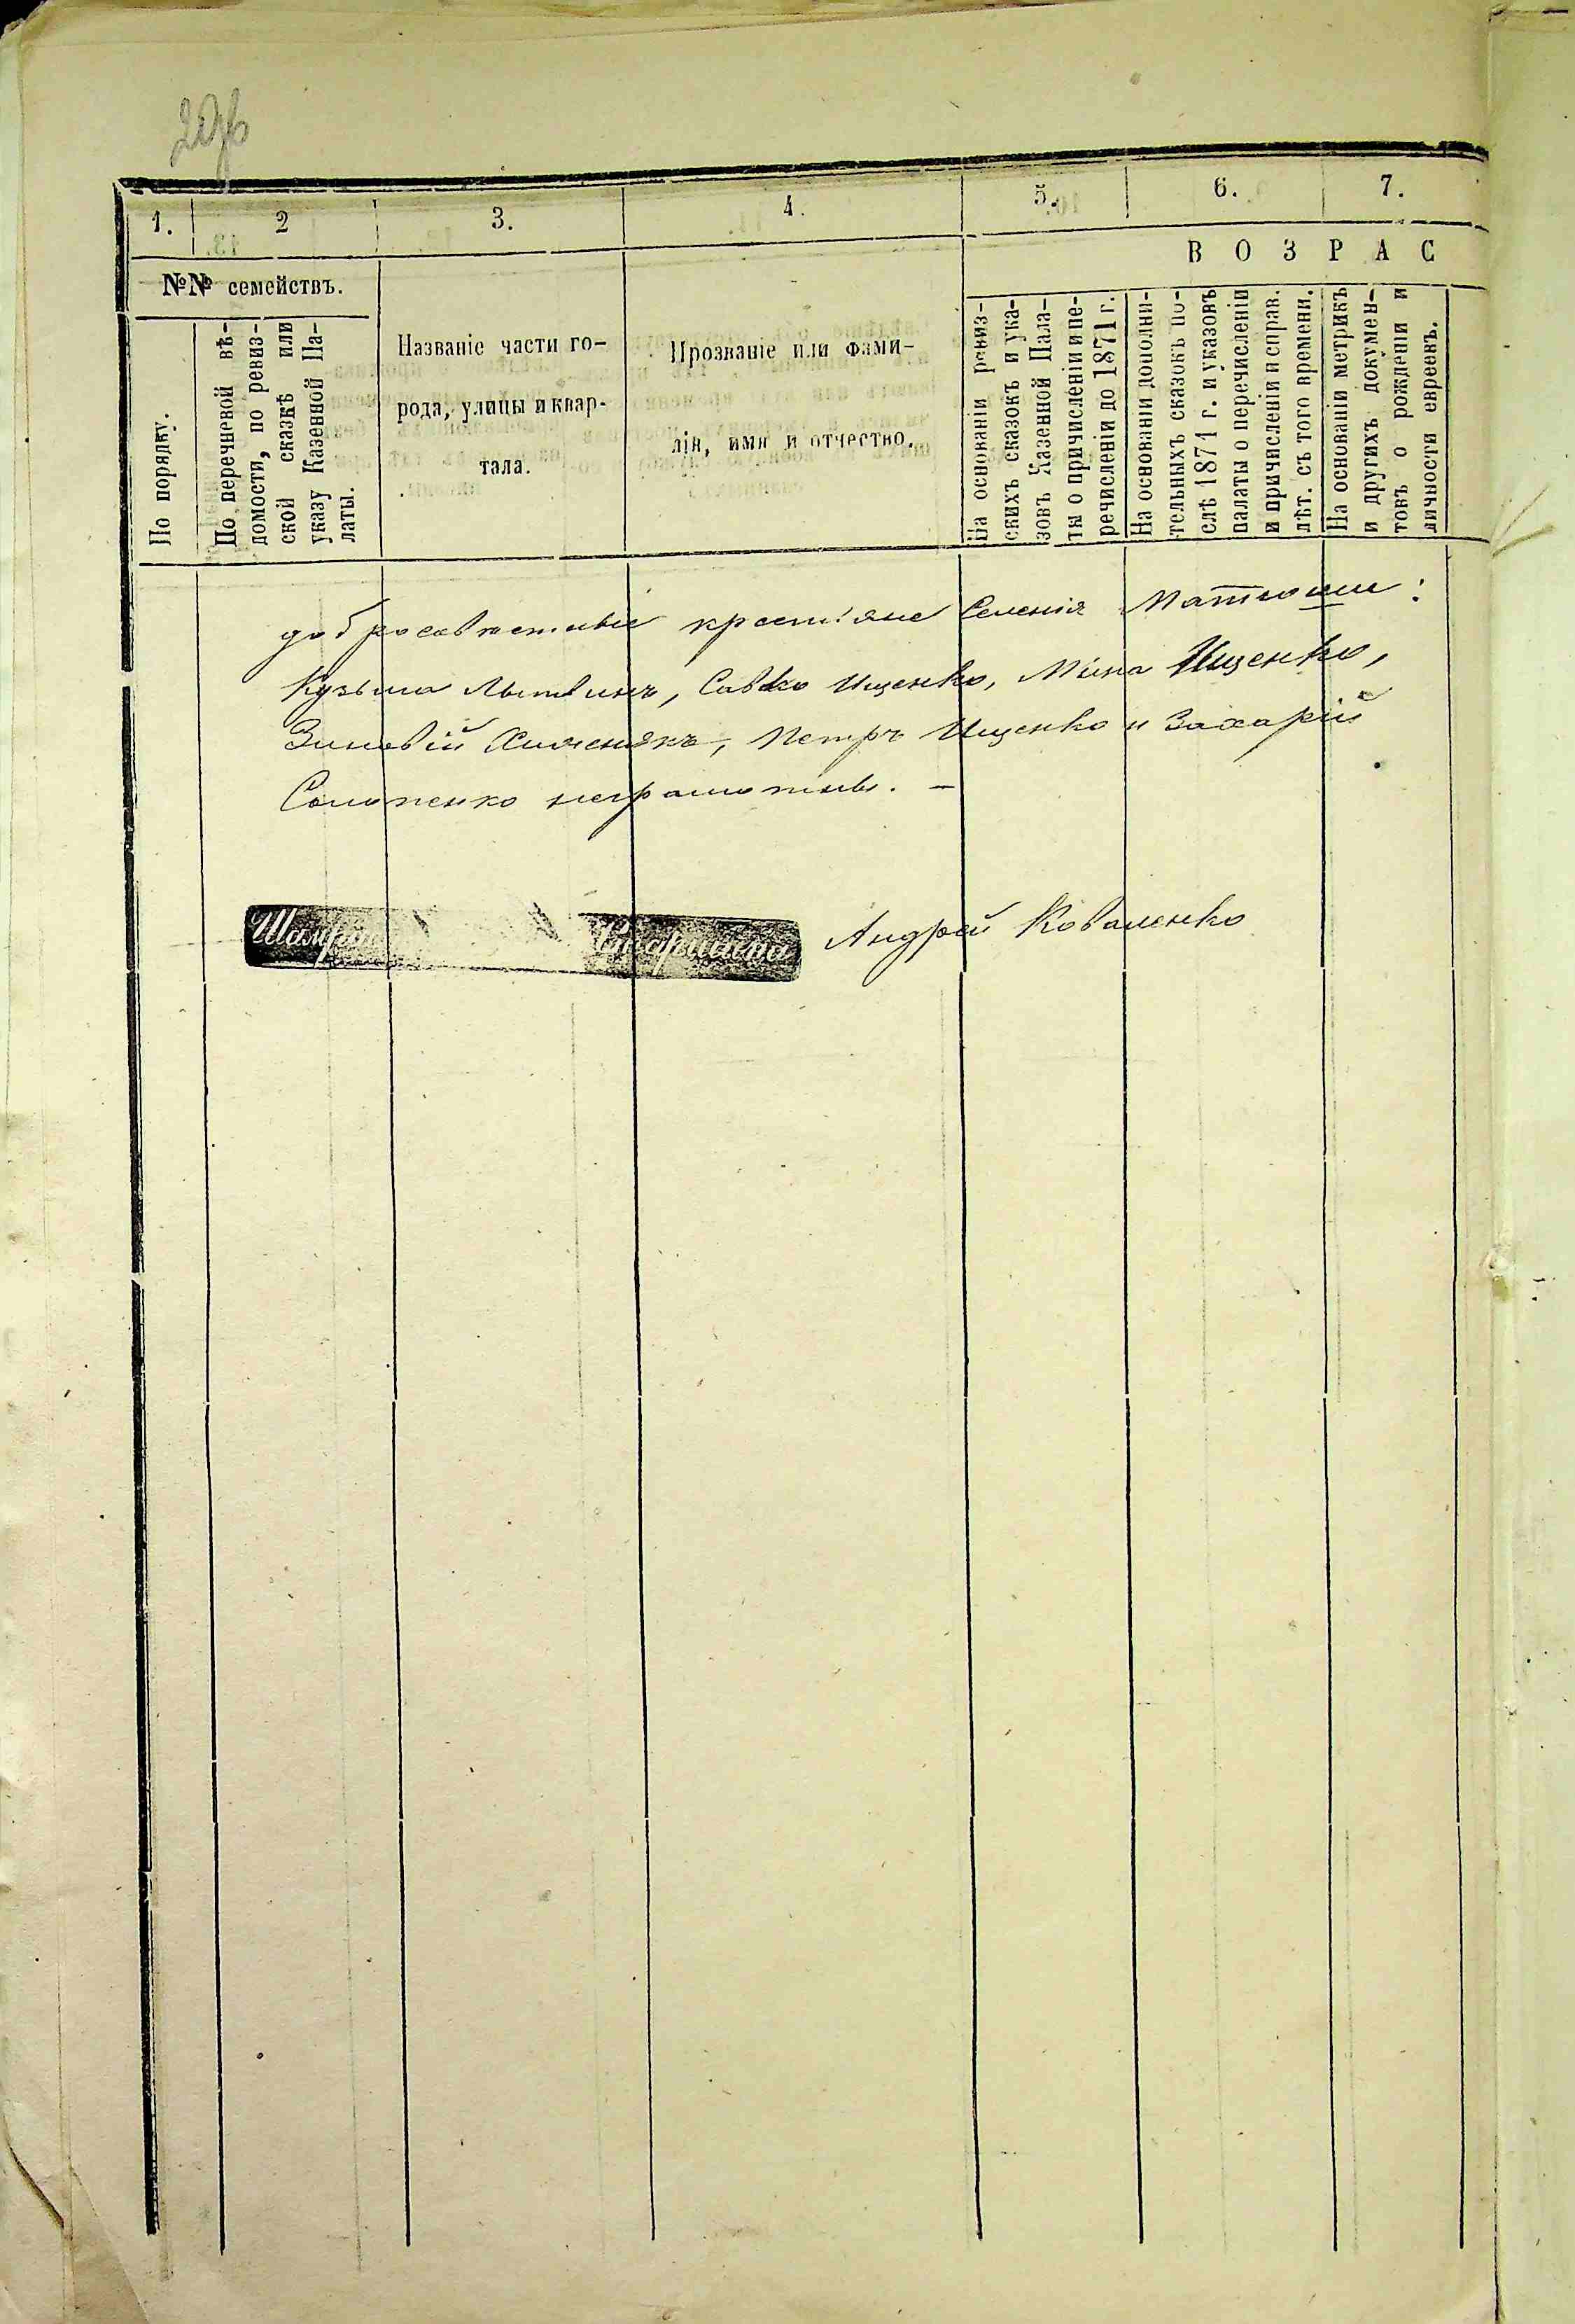 1. 2 3. 4. 5. 6. 7.
В О З Р А С
№№ семействъ.
По порядку.
По перечневой вѣ-
домости, по ревиз-
ской сказкѣ или
указу Казенной Па-
латы.
Названіе части го-
рода, улицы и квар-
тала.
Прозваніе или фами-
лія, имя и отчество.
На основаніи ревиз-
скихъ сказокъ и ука-
зовъ Казенной Пала-
ты о причисленіи и пе-
речисленіи до 1871 г.
На основаніи дополни-
тельныхъ сказокъ по-
слѣ 1871 г. и указовъ
палаты о перечисленіи
и причисленіи и справ.
лѣт. съ того времени.
На основаніи метрикъ
и другихъ докумен-
товъ о рожденіи и
личности евреевъ.
добросовѣстные крестьяне Селенія Матюши:
Кузьма Лытвинъ, Савко Ищенко, Мина Ищенко,
Зиновій Хименякъ, Петръ Ищенко и Захарій
неграмотны. –
Старшина Андрей Коваленко